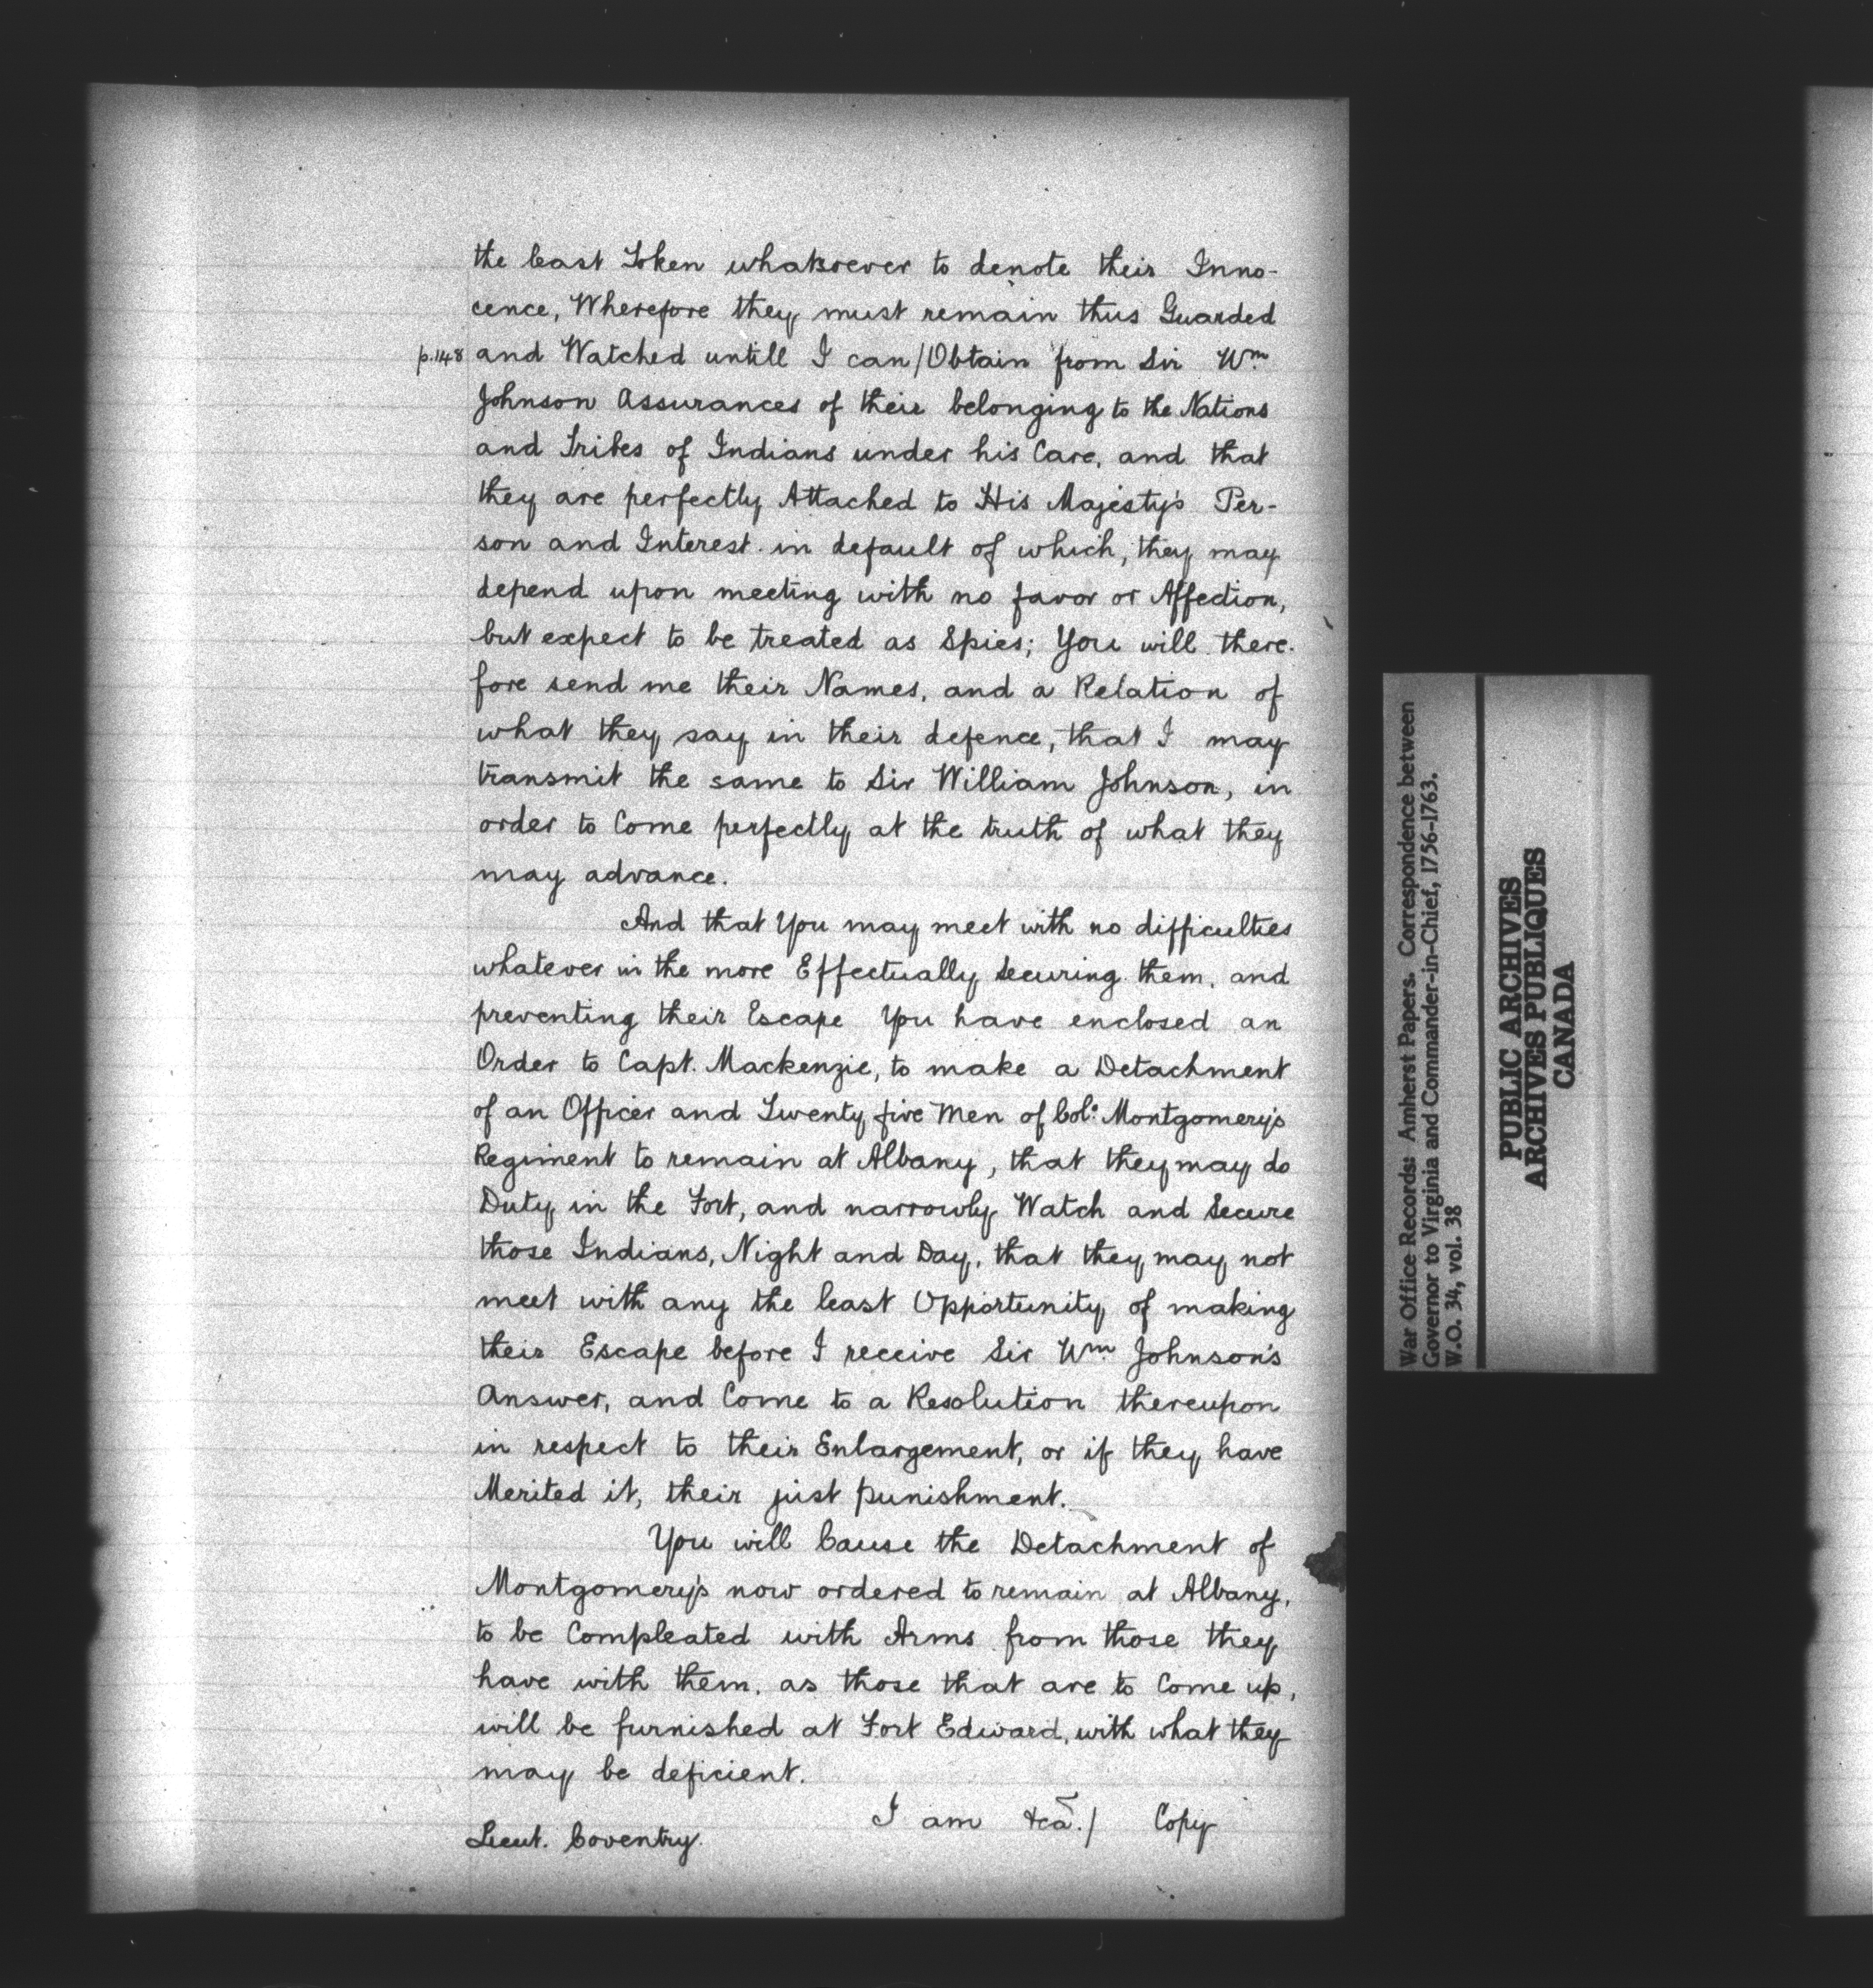 the least Token whatsoever to denote their Inno-
cence, Wherefore they must remain thus Guarded
p.148 and Watched untill I can/Obtain from Sir Wm.
Johnson Assurances of their belonging to the Nations
and Tribes of Indians under his Care, and that
they are perfectly Attached to His Majesty's Per-
son and Interest. in default of which, they may
depend upon meeting with no favor or Affection,
but expect to be treated as Spies; You will there-
fore send me their Names, and a Relation of
what they say in their defence, that I may
transmit the same to Sir William Johnson, in
order to Come perfectly at the truth of what they
may advance.
And that You may meet with no difficulties
whatever in the more Effectually Securing them, and
preventing their Escape You have enclosed an
Order to Capt. Mackenzie, to make a Detachment
of an Officer and Twenty five Men of Col: Montgomery's
Regiment to remain at Albany, that they may do
Duty in the Fort, and narrowly Watch and Secure
those Indians, Night and Day, that they may not
meet with any the least Opportunity of making
their Escape before I receive Sir Wm. Johnson's
Answer, and Come to a Resolution thereupon
in respect to their Enlargement, or if they have
Merited it, their just punishment.
You will Cause the Detachment of
Montgomery's now ordered to remain at Albany,
to be Compleated with Arms from those they
have with them. as those that are to Come up,
will be furnished at Fort Edward, with what they
may be deficient.
I am &ca./ Copy
Lieut. Coventry.
War Office Records: Amherst Papers. Correspondence between
Governor to Virginia and Commander-in-Chief, 1756-1763.
W.O. 34, vol. 38
PUBLIC ARCHIVES
ARCHIVES PUBLIQUES
CANADA